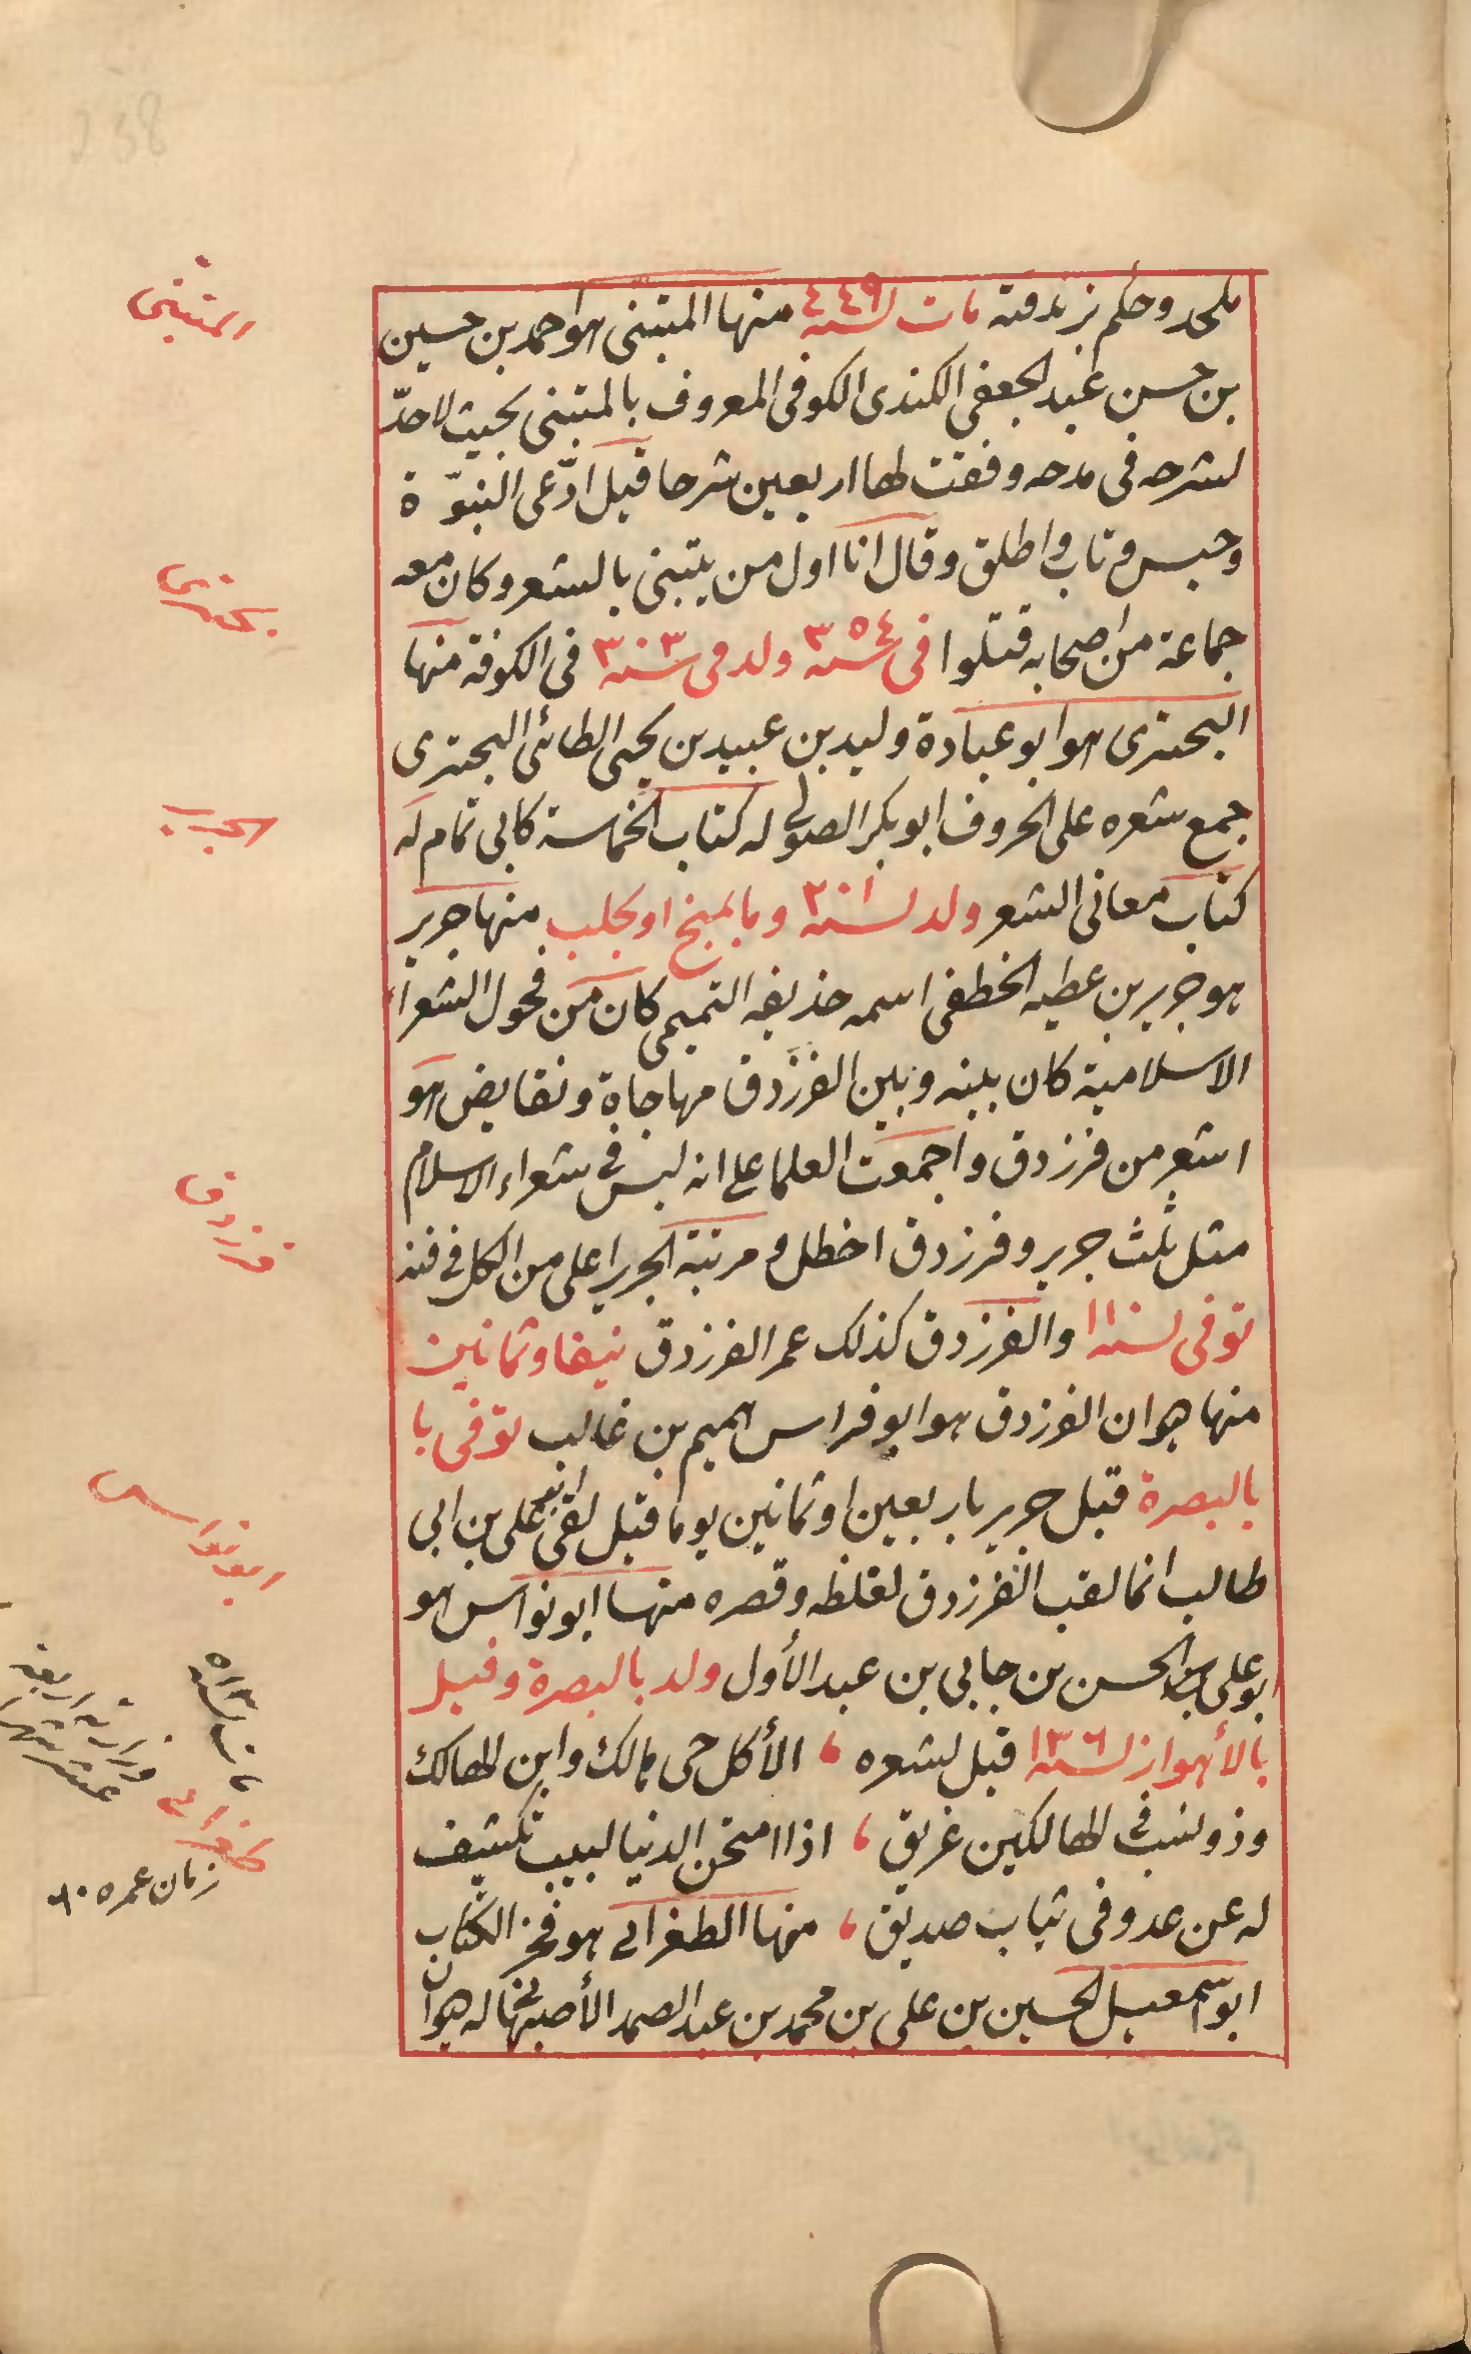 ملحد وحكم بزندقته مات لسنة ٤٤٩ منها المتنبى هو احمد بن حسين
بن حسن عبد الجعفى الكندى الكوفى المعروف بالمتنبى بحيث لا حدّ
لشرحه فى مدحه وقفت لها اربعين شرحا قيل ادّعى النبوّة
وحبس وتاب واطلق وقال انا اول من يتبنى بالشعر وكان معه
جماعة من اصحابه قتلوا فى سنة ٣٥٤ ولد فى سنة ٣٠٣ فى الكوفة منها
البحترى هو ابو عبادة وليد بن عبيد بن يحيى الطائى البحترى
جمع شعره على الحروف ابو بكر الصولى له كتاب الحماسة كابى تمام له
كتاب معانى الشعر ولد لسنة ٢٠١ وبالمنبج او بحلب منها جرير
هو جرير بن عطيه الخطفى اسمه حذيفه التميمى كان من فحول الشعرا
الاسلامية كان بينه وبين الفرزدق مهاجاة ونقايض هو
اشعر من فرزدق واجمعت العلما على انه ليس فى شعراء الاسلام
مثل ثلث جرير وفرزدق اخطل ومرتبة الجرير اعلى من الكل فى فنه
توفى لسنة ١١ والفرزدق كذلك عمر الفرزدق نيفا وثمانين
منها هوان الفرزدق هو ابو فراس هميم بن غالب توفى با
بالبصرة قبل جرير باربعين او ثمانين يوما قيل لقى علي بن ابى
طالب انما لقب الفرزدق لغلظه وقصره منها ابو نواس هو
ابو على الحسن بن جابى بن عبد الأول ولد بالبصرة وقيل
بالأهواز لسنة ١٣٦ قيل لشعره الأكل حى هالك وابن الهالك
وذو نسب فى الهالكين غريق اذا امتحن الدنيا لبيب تكشف
له عن عدو فى ثياب صديق منها الطغرائى هو فخر الكتاب
ابو اسمعيل الحسين بن على بن محمد بن عبد الصمد الأصبهانى له هوان
المتنبى
بحترى
فرزدق
ابو نواس
طغرائى
مات لسنة ٥١٣
زمان عمره ٦٠